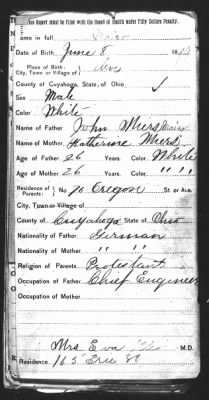 This Report must be filed with the Board of Health under Fifty Dollars Penalty.
ame in full
Date of Birth June 8 18
Place of Birth:
City, Town or Village of
County of Cuyahoga, State of, Ohio
Sex Male
Color White
Name of Father John Miers
Name of Mother Katherine Miers
Age of Father 26 Years. Color White
Age of Mother 26 Years. Color " " "
Residence of Parents: No 76 Oregon St. or Ave.
City, Town or Village of
County of Cuyahoga State of Ohio
Nationality of Father German
Nationality of Mother " "
Religion of Parents Protestant
Occupation of Father Chief Engineer
Occupation of Mother
Mrs Eva M.D.
Residence. 165 Erie St